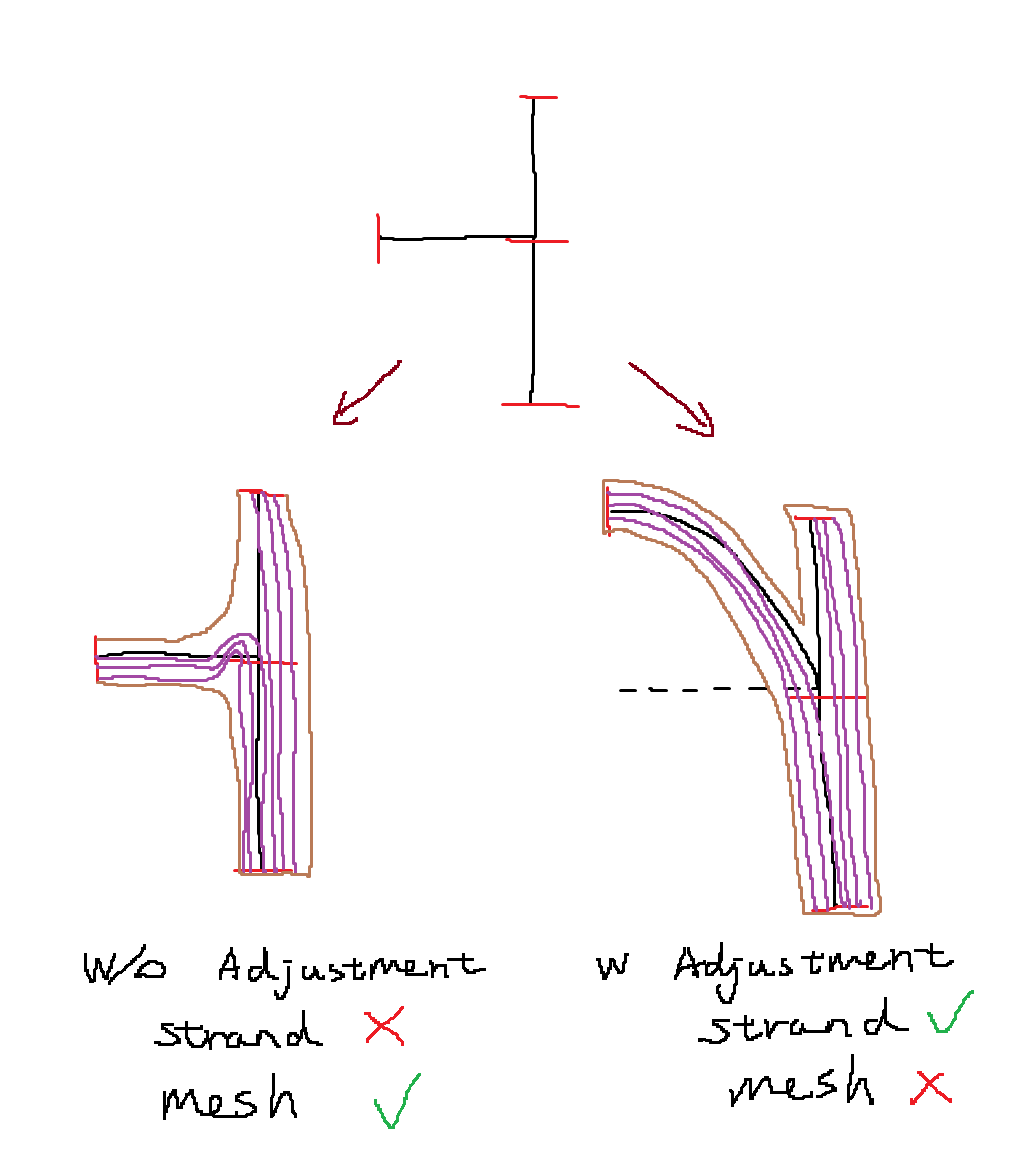 W/o Adjustment
strand ✗
mesh ✓
w Adjustment
strand ✓
mesh ✗